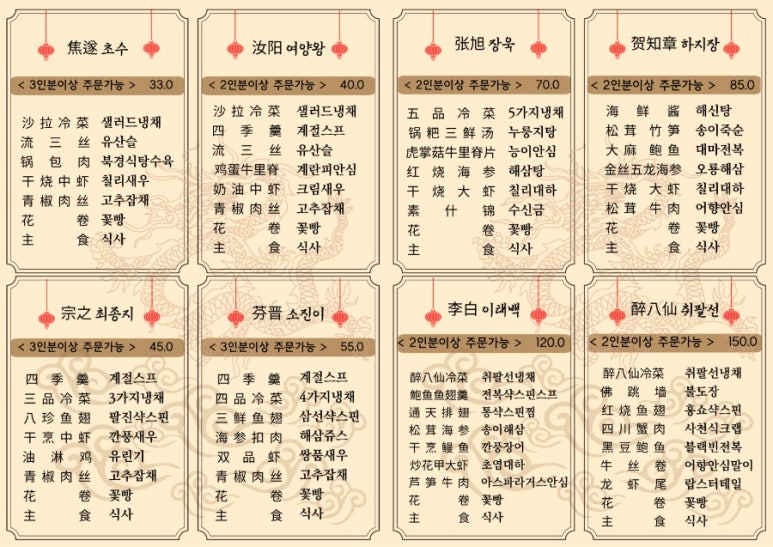 焦遂 초수
< 3인분이상 주문가능 > 33.0
沙拉冷菜 샐러드냉채
流三丝 유산슬
锅包肉 북경식탕수육
干烧中虾 칠리새우
青椒肉丝 고추잡채
花卷 꽃빵
主食 식사
汝阳 여양왕
< 2인분이상 주문가능 > 40.0
沙拉冷菜 샐러드냉채
四季羹 계절스프
流三丝 유산슬
鸡蛋牛里脊 계란피안심
奶油中虾 크림새우
青椒肉丝 고추잡채
花卷 꽃빵
主食 식사
张旭 장욱
< 2인분이상 주문가능 > 70.0
五品冷菜 5가지냉채
锅粑三鲜汤 누룽지탕
虎掌菇牛里脊片 능이안심
红烧海参 해삼탕
干烧大虾 칠리대하
素什锦 수신금
花卷 꽃빵
主食 식사
贺知章 하지장
< 2인분이상 주문가능 > 85.0
海鲜酱 해신탕
松茸竹笋 송이죽순
大麻鲍鱼 대마전복
金丝五龙海参 오룡해삼
干烧大虾 칠리대하
松茸牛肉 어향안심
花卷 꽃빵
主食 식사
宗之 최종지
< 3인분이상 주문가능 > 45.0
四季羹 계절스프
三品冷菜 3가지냉채
八珍鱼翅 팔진샥스핀
干烹中虾 깐풍새우
油淋鸡 유린기
青椒肉丝 고추잡채
花卷 꽃빵
主食 식사
芬晋 소진이
< 3인분이상 주문가능 > 55.0
四季羹 계절스프
四品冷菜 4가지냉채
三鲜鱼翅 삼선샥스핀
海参扣肉 해삼쥬스
双品虾 쌍품새우
青椒肉丝 고추잡채
花卷 꽃빵
主食 식사
李白 이래백
< 2인분이상 주문가능 > 120.0
醉八仙冷菜 취팔선냉채
鲍鱼鱼翅羹 전복샥스핀스프
通天排翅 통샥스핀찜
松茸海参 송이해삼
干烹鳗鱼 깐풍장어
炒花甲大虾 초염대하
芦笋牛肉 아스파라거스안심
花卷 꽃빵
主食 식사
醉八仙 취팔선
< 2인분이상 주문가능 > 150.0
醉八仙冷菜 취팔선냉채
佛跳墙 불도장
红烧鱼翅 홍쇼샥스핀
四川蟹肉 사천식크랩
黑豆鲍鱼 블랙빈전복
牛丝卷 어향안심말이
龙虾尾 랍스터테일
花卷 꽃빵
主食 식사